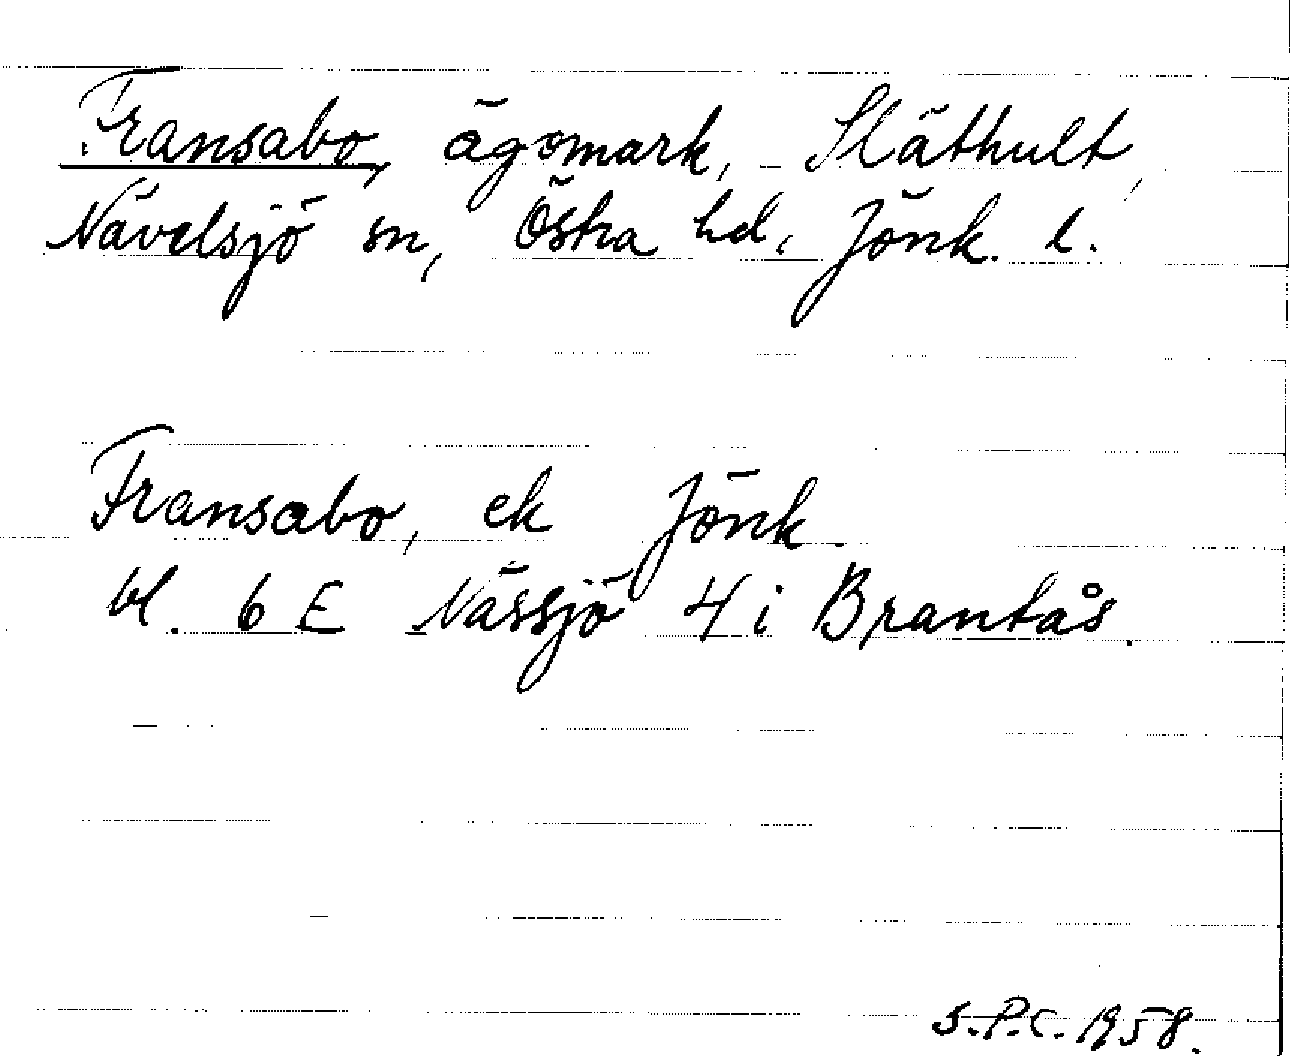 Fransabo, ägomark, Släthult,
Nävelsjö sn, Östra hd, Jönk. l.
Fransabo, ek Jönk.
bl. 6 E Nässjö 4 i Brantås.
S.P.C. 1958.